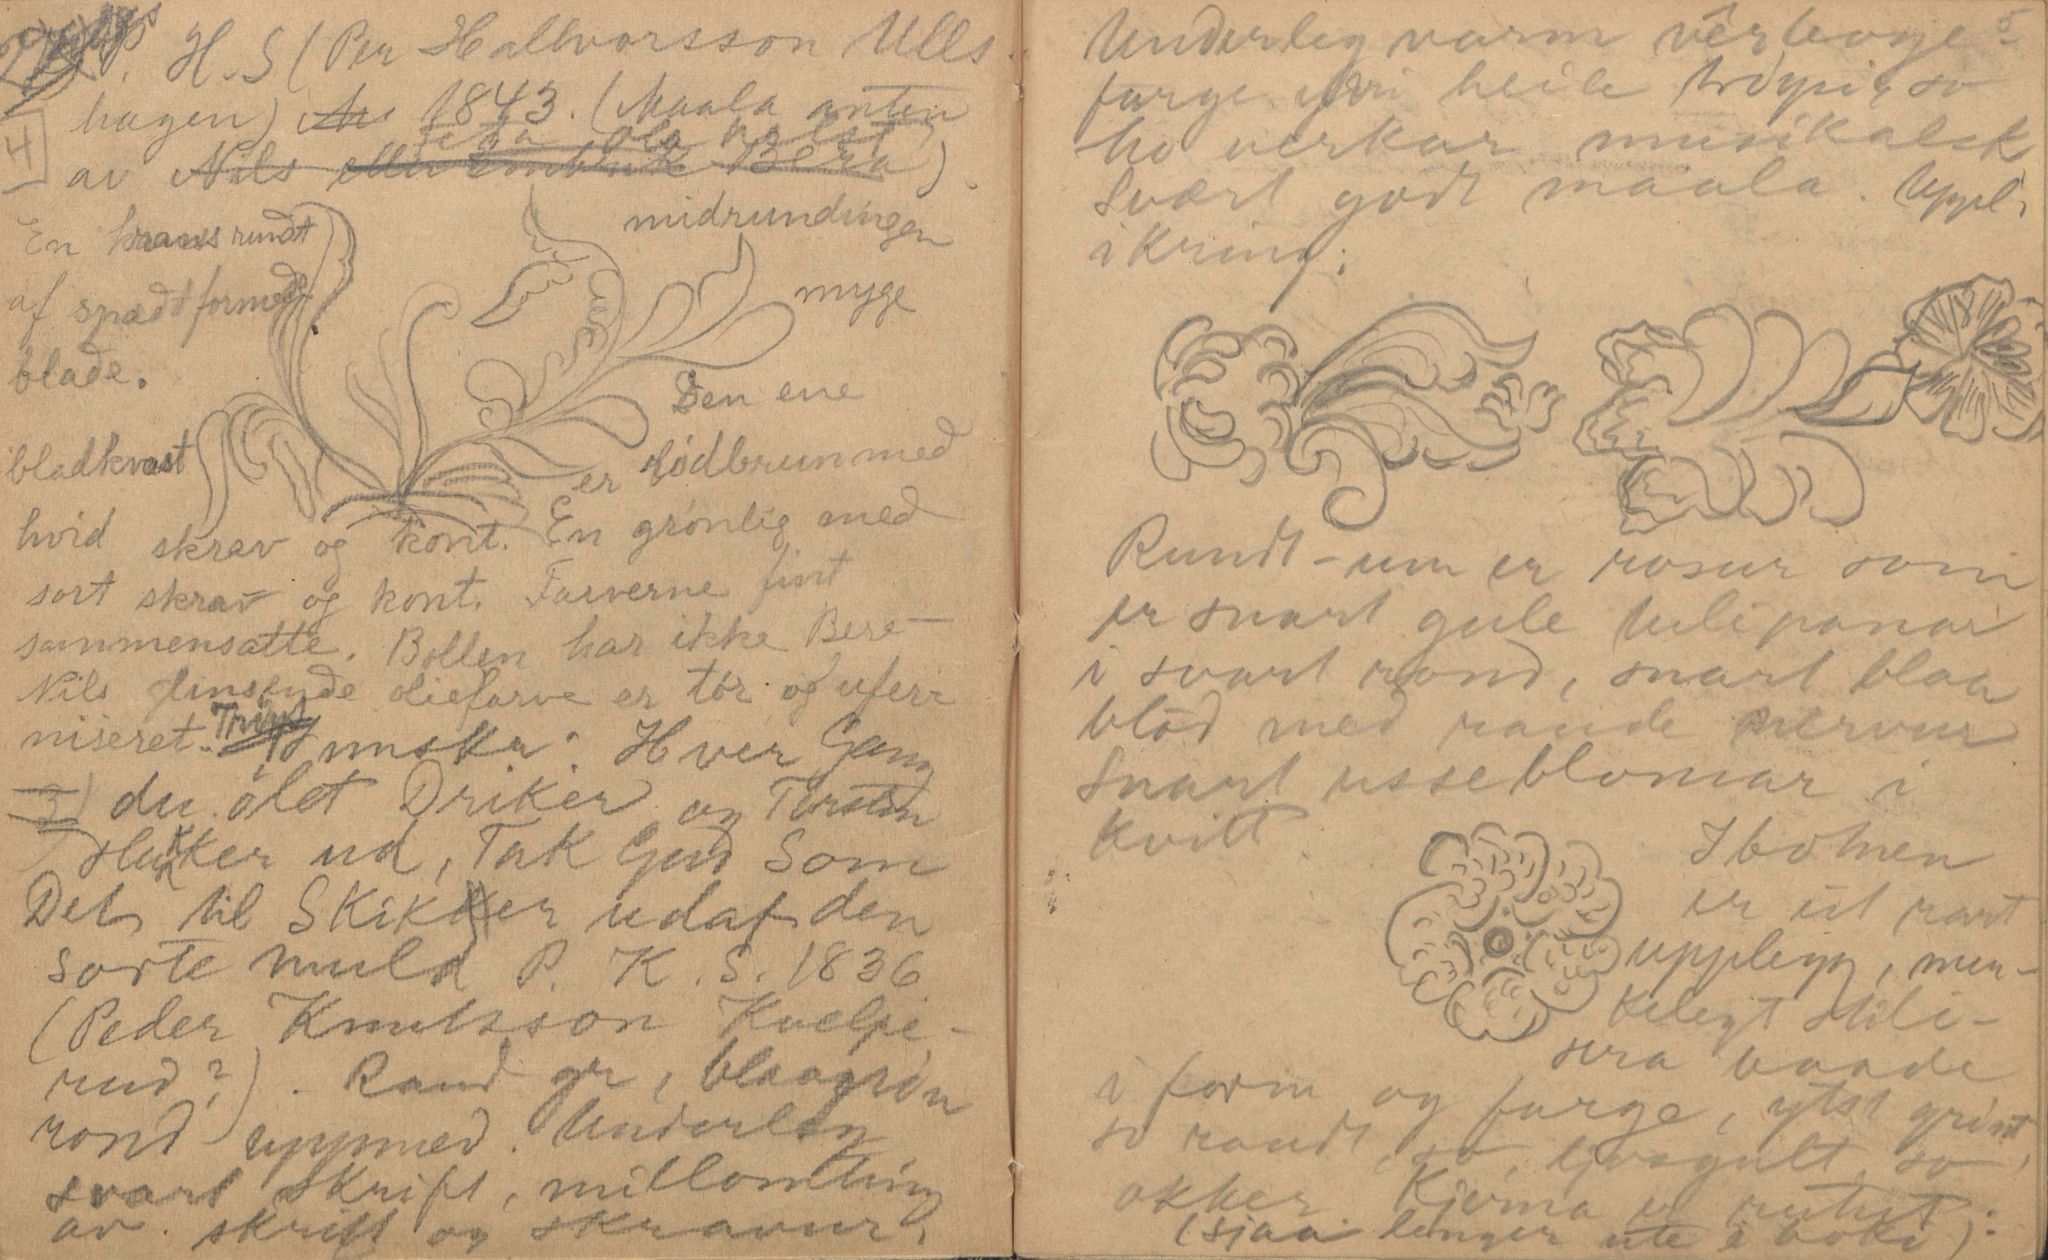 P. H. S (Per Hallvorsson Ulls
hagen) 1843. (Maala anten
av Nils Bera).
4
midrundingen
En krans rundt
myge
af spædt formede
blade.
Den ene
bladkvast
er rödbrun med
hvid skrav og kont. En grönlig med
sort skrav og kont. Farverne fint
sammensatte. Bollen har ikke Bere-
Nils glinsende oliefarve er tör og ufer
niseret.
Hver Gang
3) du ölet Driker og Torsten
slukker ud, Tak Gud Som
Det til Skikker udaf den
sorte muld P. K. S. 1836
(Peder Knutsson Kvelpe-
rud?). Raud gr, blaagrön
rond uppmed. Underleg
svart skrift, millomting
av skrift og skravur.
5
Underleg varm
farge yvi heile so
ho verkar musikalsk
Svært godt maala. Uppl.
ikring:
Rundt-um er rosur som
er snart gule tulipanar
i svart rond, snart blaa
blöd med raude nervur
Snart nsseblomar i
kvitt.
I botnen
er eit rart
upplegg, mer-
kelegt stili-
sera baade
i form og farge, ytst grönt,
so raudt, so ljosgult, so
okker. Kjerna er rutut.
(sjaa lenger ute i boki).